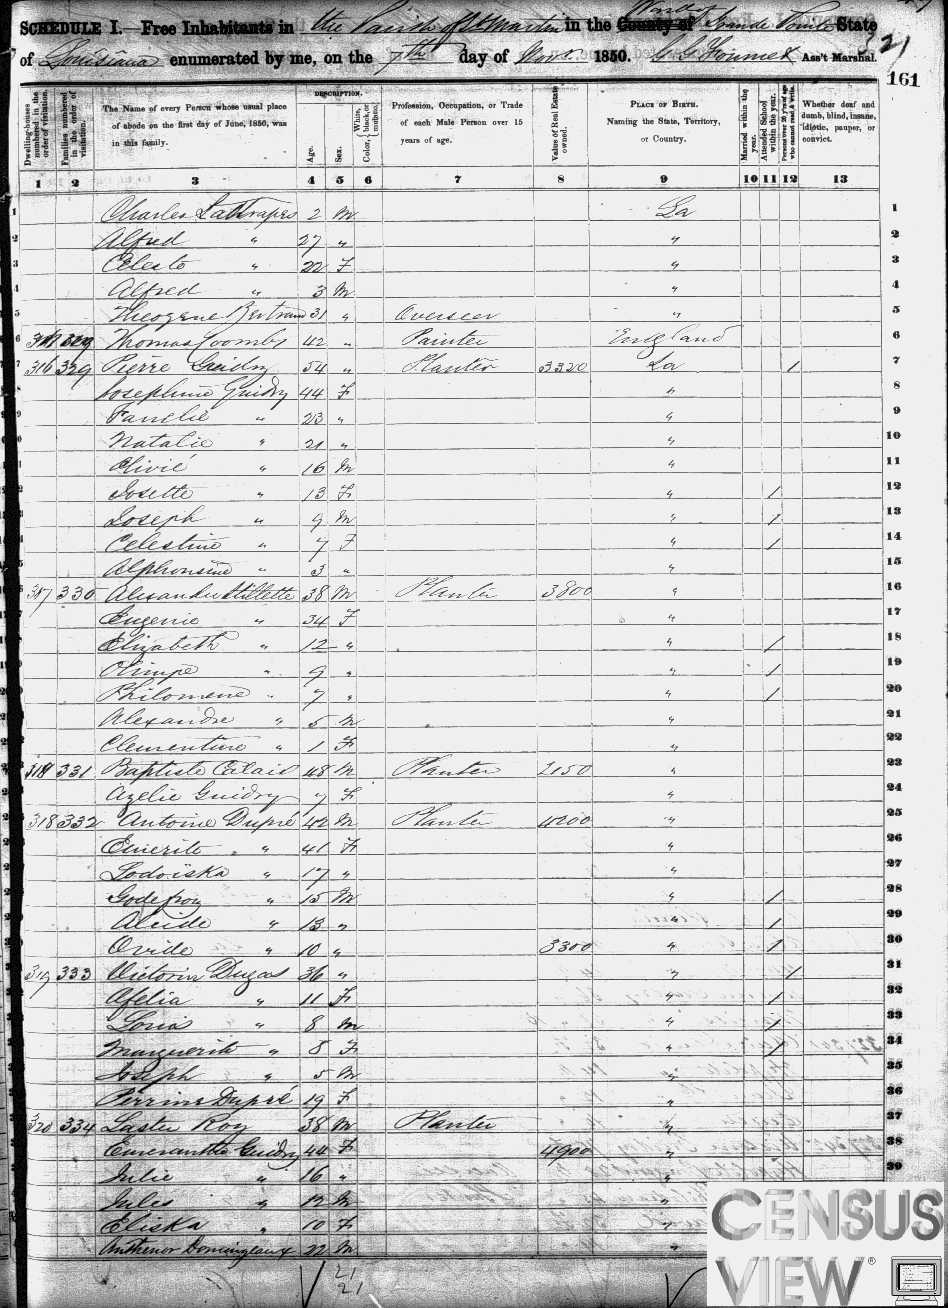 SCHEDULE I.—Free Inhabitants in the Parish of St Martin in the County of Grande Pointe State
of Louisiana enumerated by me, on the 7th day of Novr 1850. Ass't Marshal.
321
161
Dwelling-houses numbered in the order of visitation. Families numbered in the order of visitation. The Name of every Person whose usual place of abode on the first day of June, 1850, was in this family. DESCRIPTION. Age. Sex. Color, White, black, or mulatto. Profession, Occupation, or Trade of each Male Person over 15 years of age. Value of Real Estate owned. PLACE OF BIRTH. Naming the State, Territory, or Country. Married within the year. Attended School within the year. Persons over 20 y'rs of age who cannot read & write. Whether deaf and dumb, blind, insane, idiotic, pauper, or convict.
1 2 3 4 5 6 7 8 9 10 11 12 13
1 Charles Lattrapes 2 M La 1
2 Alfred " 27 " " 2
3 Celeste " 22 F " 3
4 Alfred " 3 M " 4
5 Theogene Bertrand 31 " Overseer " 5
6 329 Thomas Coombs 42 " Painter England 6
7 316 329 Pierre Guidry 54 " Planter 3320 La 1 7
Josephine Guidry 44 F " 8
Famelie " 23 " " 9
Natalie " 21 " " 10
Olivié " 16 M " 11
Josette " 13 F " 1 12
Joseph " 9 M " 1 13
Celestine " 7 F " 1 14
Alphonsine " 3 " " 15
317 330 Alexandre Millette 38 M Planter 3800 " 16
Eugenie " 34 F " 17
Elizabeth " 12 " " 1 18
Olimpe " 9 " " 1 19
Philomene " 7 " " 1 20
Alexandre " 5 M " 21
Clementine " 1 F " 22
331 Baptiste Calais 48 M Planter 2150 " 23
Azelie Guidry 7 F " 24
318 332 Antoine Dupré 42 M Planter 4200 " 25
Emerite " 41 F " 26
Lodoiska " 17 " " 27
Godefroy " 15 M " 1 28
Alcide " 13 " " 1 29
Ovide " 10 " 3300 " 1 30
319 333 Victorin Dugas 36 " " 1 31
Afelia " 11 F " 1 32
" 8 M " 1 33
Marguerite " 8 F " 1 34
Joseph " 5 M " 35
Perrine Dupré 19 F " 36
320 334 Lastie Roy 38 M Planter " 37
Emeranthe Guidry 44 F 4900 " 38
Julie " 16 " " 39
Jules " 12 M "
Eliska " 10 F "
Anthenor Domingeaux 22 M "
21
21
CENSUS
VIEW®